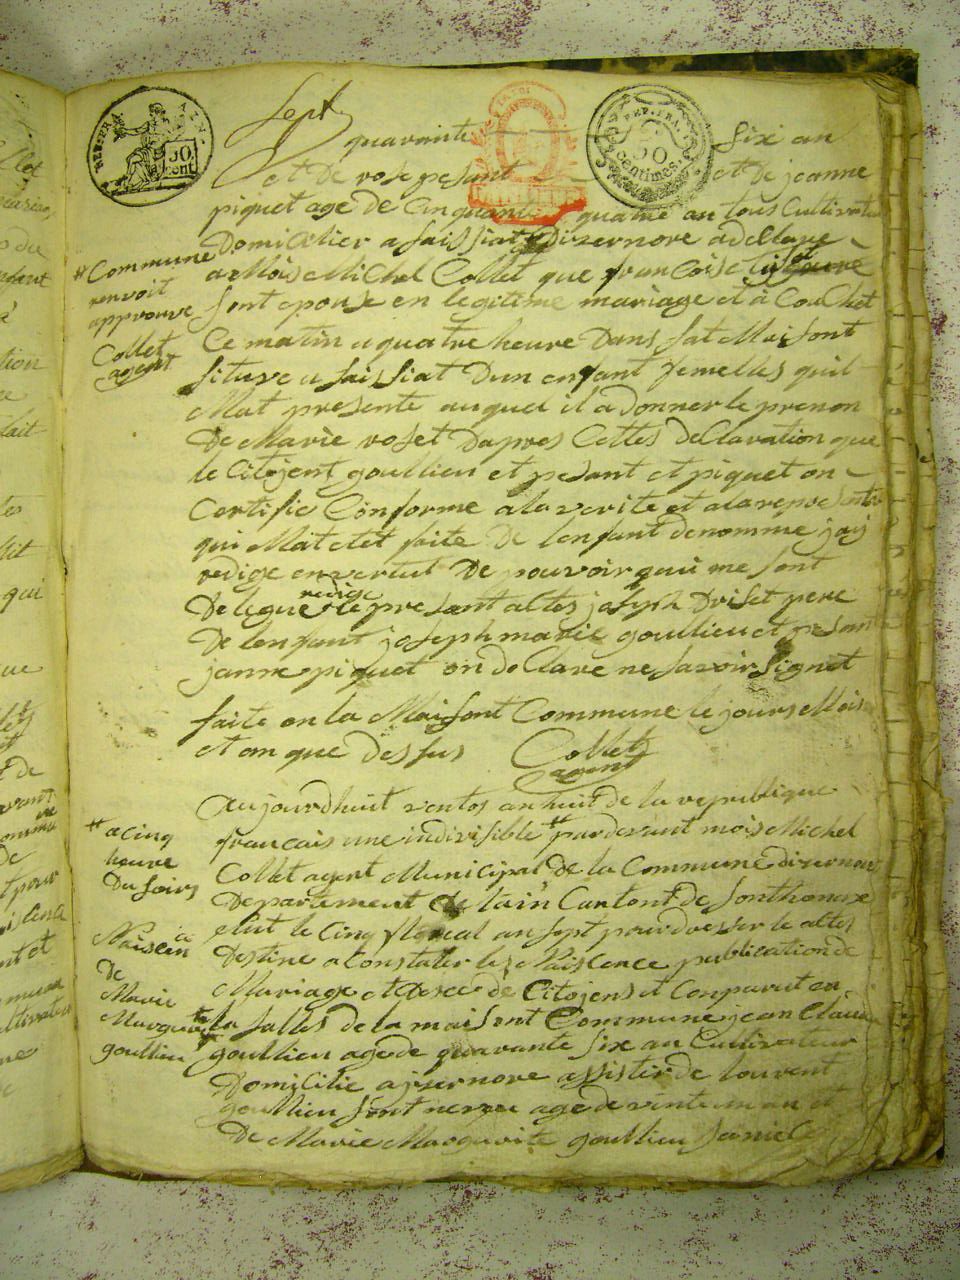 Sept
REP. FRA.
AIN.
50 cent.
REP. FRA.
50
centimes.
quarante six an
et De rose pesant et De jeanne
piquet age De Cinquante quatre an tous Cultivateur
Domicilier a faissiat Dizernore a declare
a Mois Michel Collet que francoise
# Commune
renvoit
approuve
Collet
agent
sont epouse en legitime mariage et à Couchet
Ce matin a quatre heure Dans sat Maisont
situze a faissiat Dun enfant femelles quil
Mat presente auquel il a Donner le prenon
De Marie roset Dapres Cettes declaration que
le Citojent goullieu et pesant et piquet on
Certifie Conforme a la verite et a la
qui Mat etet faite De lenfant denomme jaj
redige en vertut De pouvoir qui me sont
Delegue redige le presant altes joseph Driset pere
De lenfant joseph marie goullieu et pesant
janne piquet on declare ne savoir signet
faite en la Maisont Commune le jours Mois
et an que Dessus Collet
agent
Aujourdhuit ventos an huit de la republique
francais une indivisible # par devant mois Michel
# a cinq
heure
Du soirs
Collet agent Municipal De la Commune dizernore
Departement De lain Cantont de sonthonax
elut le Cinq floreal an sept pour dresser le altes
Destine a Constater les Naiscence publication de
Naiscen
De
Marie
Marguerite
goullieu
Mariage et Desce de Citojens et Conparut en
la salles de la maisont Commune jean Claude
goullieu age de quarante six an Cultivateur
Domicilie a jzernore assister de lourent
goullieu sont neveu age de vinte un an et
De Marie Marguerite goullieu